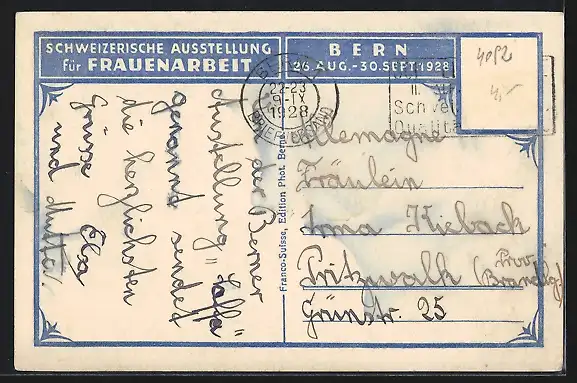 SCHWEIZERISCHE AUSSTELLUNG
für FRAUENARBEIT
BERN
26. AUG. - 30. SEPT. 1928
BERN
22-23
9-IX
1928
BRIEFVERSAND
II.
Schwei
Qualitä
4092
4,-
der Berner
Austellung "Saffa"
genannt sendet
die herzlichsten
Grüsse Elsa
und Mutter.
Franco-Suisse, Edition Phot. Berne
Allemagne
Fräulein
Irma Kieback
Pritzwalk (Prov.
Brandbg)
Grünstr. 25